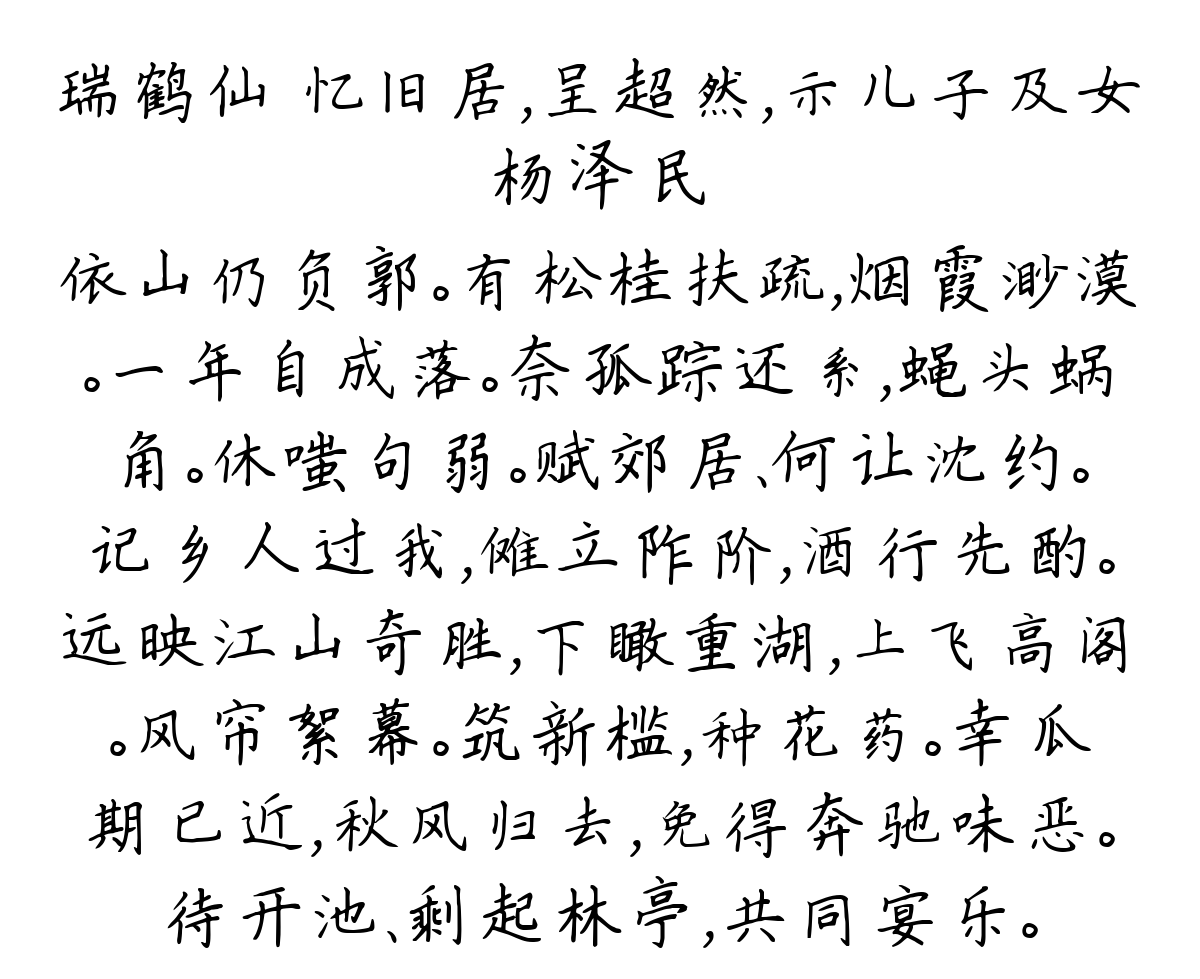 瑞鹤仙 忆旧居,呈超然,示儿子及女
杨泽民
依山仍负郭。有松桂扶疏,烟霞渺漠
。一年自成落。奈孤踪还系,蝇头蜗
角。休嗤句弱。赋郊居、何让沈约。
记乡人过我,傩立阼阶,酒行先酌。
远映江山奇胜,下瞰重湖,上飞高阁
。风帘絮幕。筑新槛,种花药。幸瓜
期已近,秋风归去,免得奔驰味恶。
待开池、剩起林亭,共同宴乐。